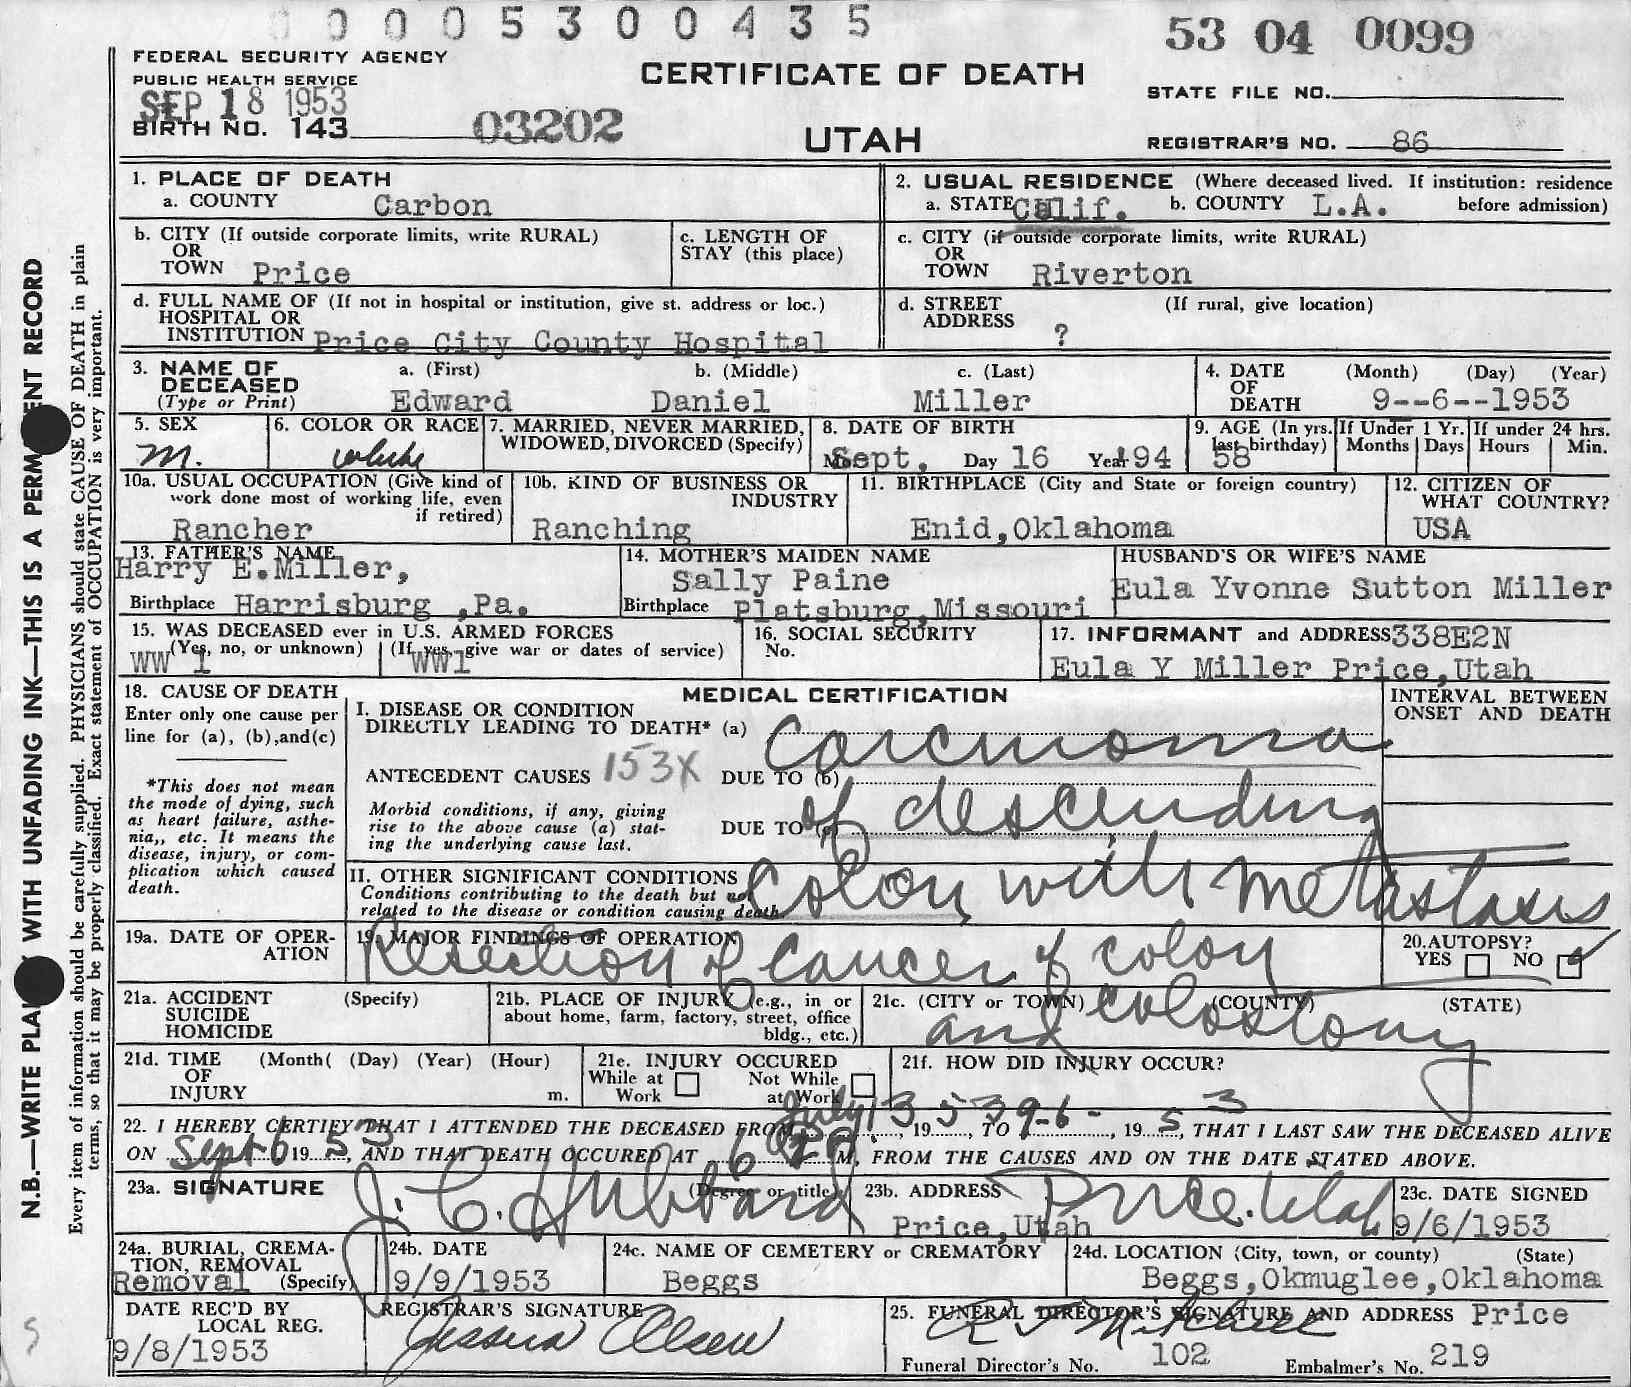 0 0 0 0 5 3 0 0 4 3 5
53 04 0099
FEDERAL SECURITY AGENCY
PUBLIC HEALTH SERVICE
CERTIFICATE OF DEATH
STATE FILE NO.
SEP 18 1953
BIRTH NO. 143
03202
UTAH
REGISTRAR'S NO. 86
1. PLACE OF DEATH
a. COUNTY Carbon
2. USUAL RESIDENCE (Where deceased lived. If institution: residence
a. STATE Calif. b. COUNTY L.A. before admission)
b. CITY (If outside corporate limits, write RURAL)
OR
TOWN Price
c. LENGTH OF
STAY (this place)
c. CITY (if outside corporate limits, write RURAL)
OR
TOWN Riverton
d. FULL NAME OF (If not in hospital or institution, give st. address or loc.)
HOSPITAL OR
INSTITUTION Price City County Hospital
d. STREET (If rural, give location)
ADDRESS ?
3. NAME OF
DECEASED
(Type or Print)
a. (First) b. (Middle) c. (Last)
Edward Daniel Miller
4. DATE (Month) (Day) (Year)
OF
DEATH 9--6--1953
5. SEX
M.
6. COLOR OR RACE
white
7. MARRIED, NEVER MARRIED,
WIDOWED, DIVORCED (Specify)
8. DATE OF BIRTH
Mo. Sept. Day 16 Year 194
9. AGE (In yrs.
last birthday)
58
If Under 1 Yr.
Months Days
If under 24 hrs.
Hours Min.
10a. USUAL OCCUPATION (Give kind of
work done most of working life, even
if retired)
Rancher
10b. KIND OF BUSINESS OR
INDUSTRY
Ranching
11. BIRTHPLACE (City and State or foreign country)
Enid,Oklahoma
12. CITIZEN OF
WHAT COUNTRY?
USA
13. FATHER'S NAME
Harry E.Miller,
Birthplace Harrisburg ,Pa.
14. MOTHER'S MAIDEN NAME
Sally Paine
Birthplace Platsburg,Missouri
HUSBAND'S OR WIFE'S NAME
Eula Yvonne Sutton Miller
15. WAS DECEASED ever in U.S. ARMED FORCES
(Yes, no, or unknown) (If yes, give war or dates of service)
WW 1 WW1
16. SOCIAL SECURITY
No.
17. INFORMANT and ADDRESS 338E2N
Eula Y Miller Price,Utah
18. CAUSE OF DEATH
Enter only one cause per
line for (a), (b),and(c)
*This does not mean
the mode of dying, such
as heart failure, asthe-
nia,, etc. It means the
disease, injury, or com-
plication which caused
death.
MEDICAL CERTIFICATION
I. DISEASE OR CONDITION
DIRECTLY LEADING TO DEATH* (a) Carcinoma
ANTECEDENT CAUSES 153X DUE TO (b)
Morbid conditions, if any, giving
rise to the above cause (a) stat-
ing the underlying cause last.
DUE TO (c) of descending
II. OTHER SIGNIFICANT CONDITIONS
Conditions contributing to the death but not
related to the disease or condition causing death.
Colon with metastasis
INTERVAL BETWEEN
ONSET AND DEATH
19a. DATE OF OPER-
ATION
19. MAJOR FINDINGS OF OPERATION
Resection of cancer of colon
and colostomy
20.AUTOPSY?
YES NO
21a. ACCIDENT (Specify)
SUICIDE
HOMICIDE
21b. PLACE OF INJURY (e.g., in or
about home, farm, factory, street, office
bldg., etc.)
21c. (CITY or TOWN) (COUNTY) (STATE)
21d. TIME (Month( (Day) (Year) (Hour)
OF
INJURY m.
21e. INJURY OCCURED
While at Not While
Work at Work
21f. HOW DID INJURY OCCUR?
22. I HEREBY CERTIFY THAT I ATTENDED THE DECEASED FROM July 13 53, 19....., TO 9-6-, 19 53, THAT I LAST SAW THE DECEASED ALIVE
ON Sept 6 19 53, AND THAT DEATH OCCURED AT 6 M, FROM THE CAUSES AND ON THE DATE STATED ABOVE.
23a. SIGNATURE (Degree or title)
J. C. Hubbard
23b. ADDRESS Price. Utah
Price,Utah
23c. DATE SIGNED
9/6/1953
24a. BURIAL, CREMA-
TION, REMOVAL
Removal (Specify)
24b. DATE
9/9/1953
24c. NAME OF CEMETERY or CREMATORY
Beggs
24d. LOCATION (City, town, or county) (State)
Beggs,Okmuglee,Oklahoma
DATE REC'D BY
LOCAL REG.
9/8/1953
REGISTRAR'S SIGNATURE
Olsen
25. FUNERAL DIRECTOR'S SIGNATURE AND ADDRESS Price
Mitchell
Funeral Director's No. 102 Embalmer's No. 219
N.B.—WRITE PLAI WITH UNFADING INK—THIS IS A PERM ENT RECORD
Every item of information should be carefully supplied. PHYSICIANS should state CAUSE OF DEATH in plain
terms, so that it may be properly classified. Exact statement of OCCUPATION is very important.